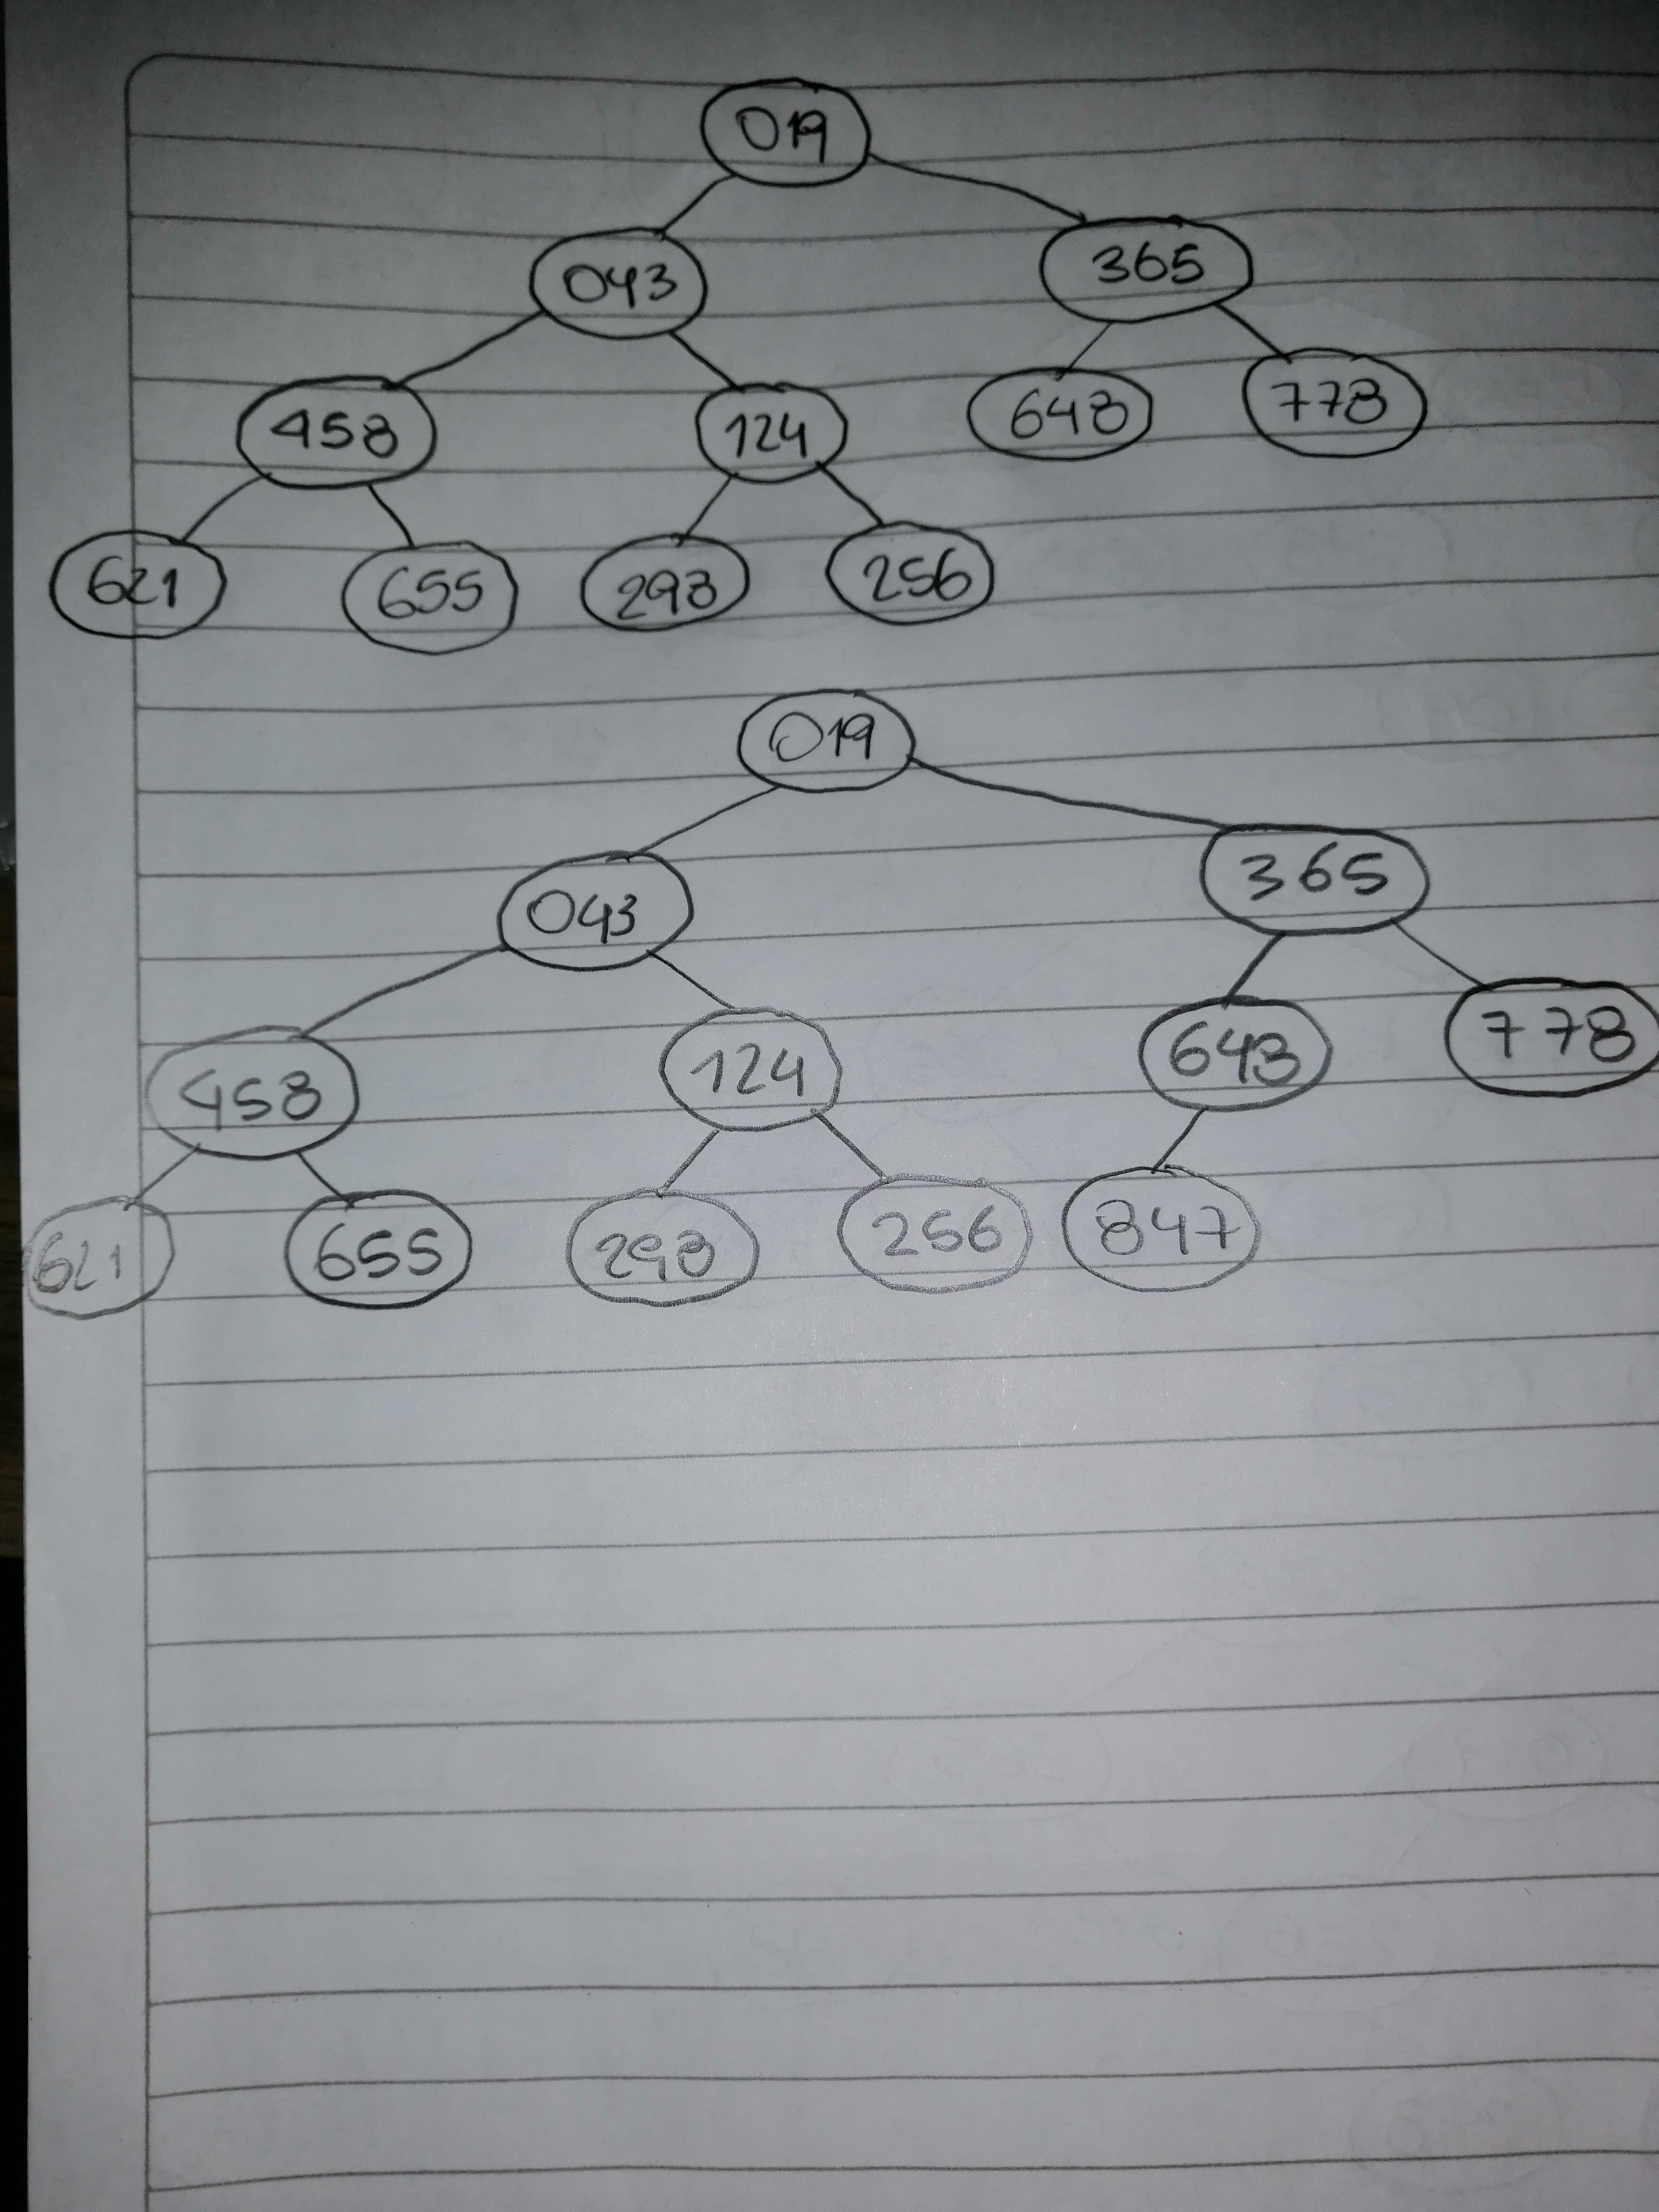 019
043 365
458 124 648 778
621 655 298 256
019
043 365
458 124 648 778
621 655 298 256 847